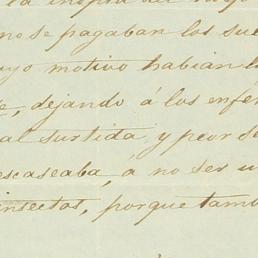 la inopia del
no se pagaban los sue
uyo motivo habian l
e, dejando á los enfer
al surtida, y peor se
escaseaba, á no ser u
insectos, porque tamb